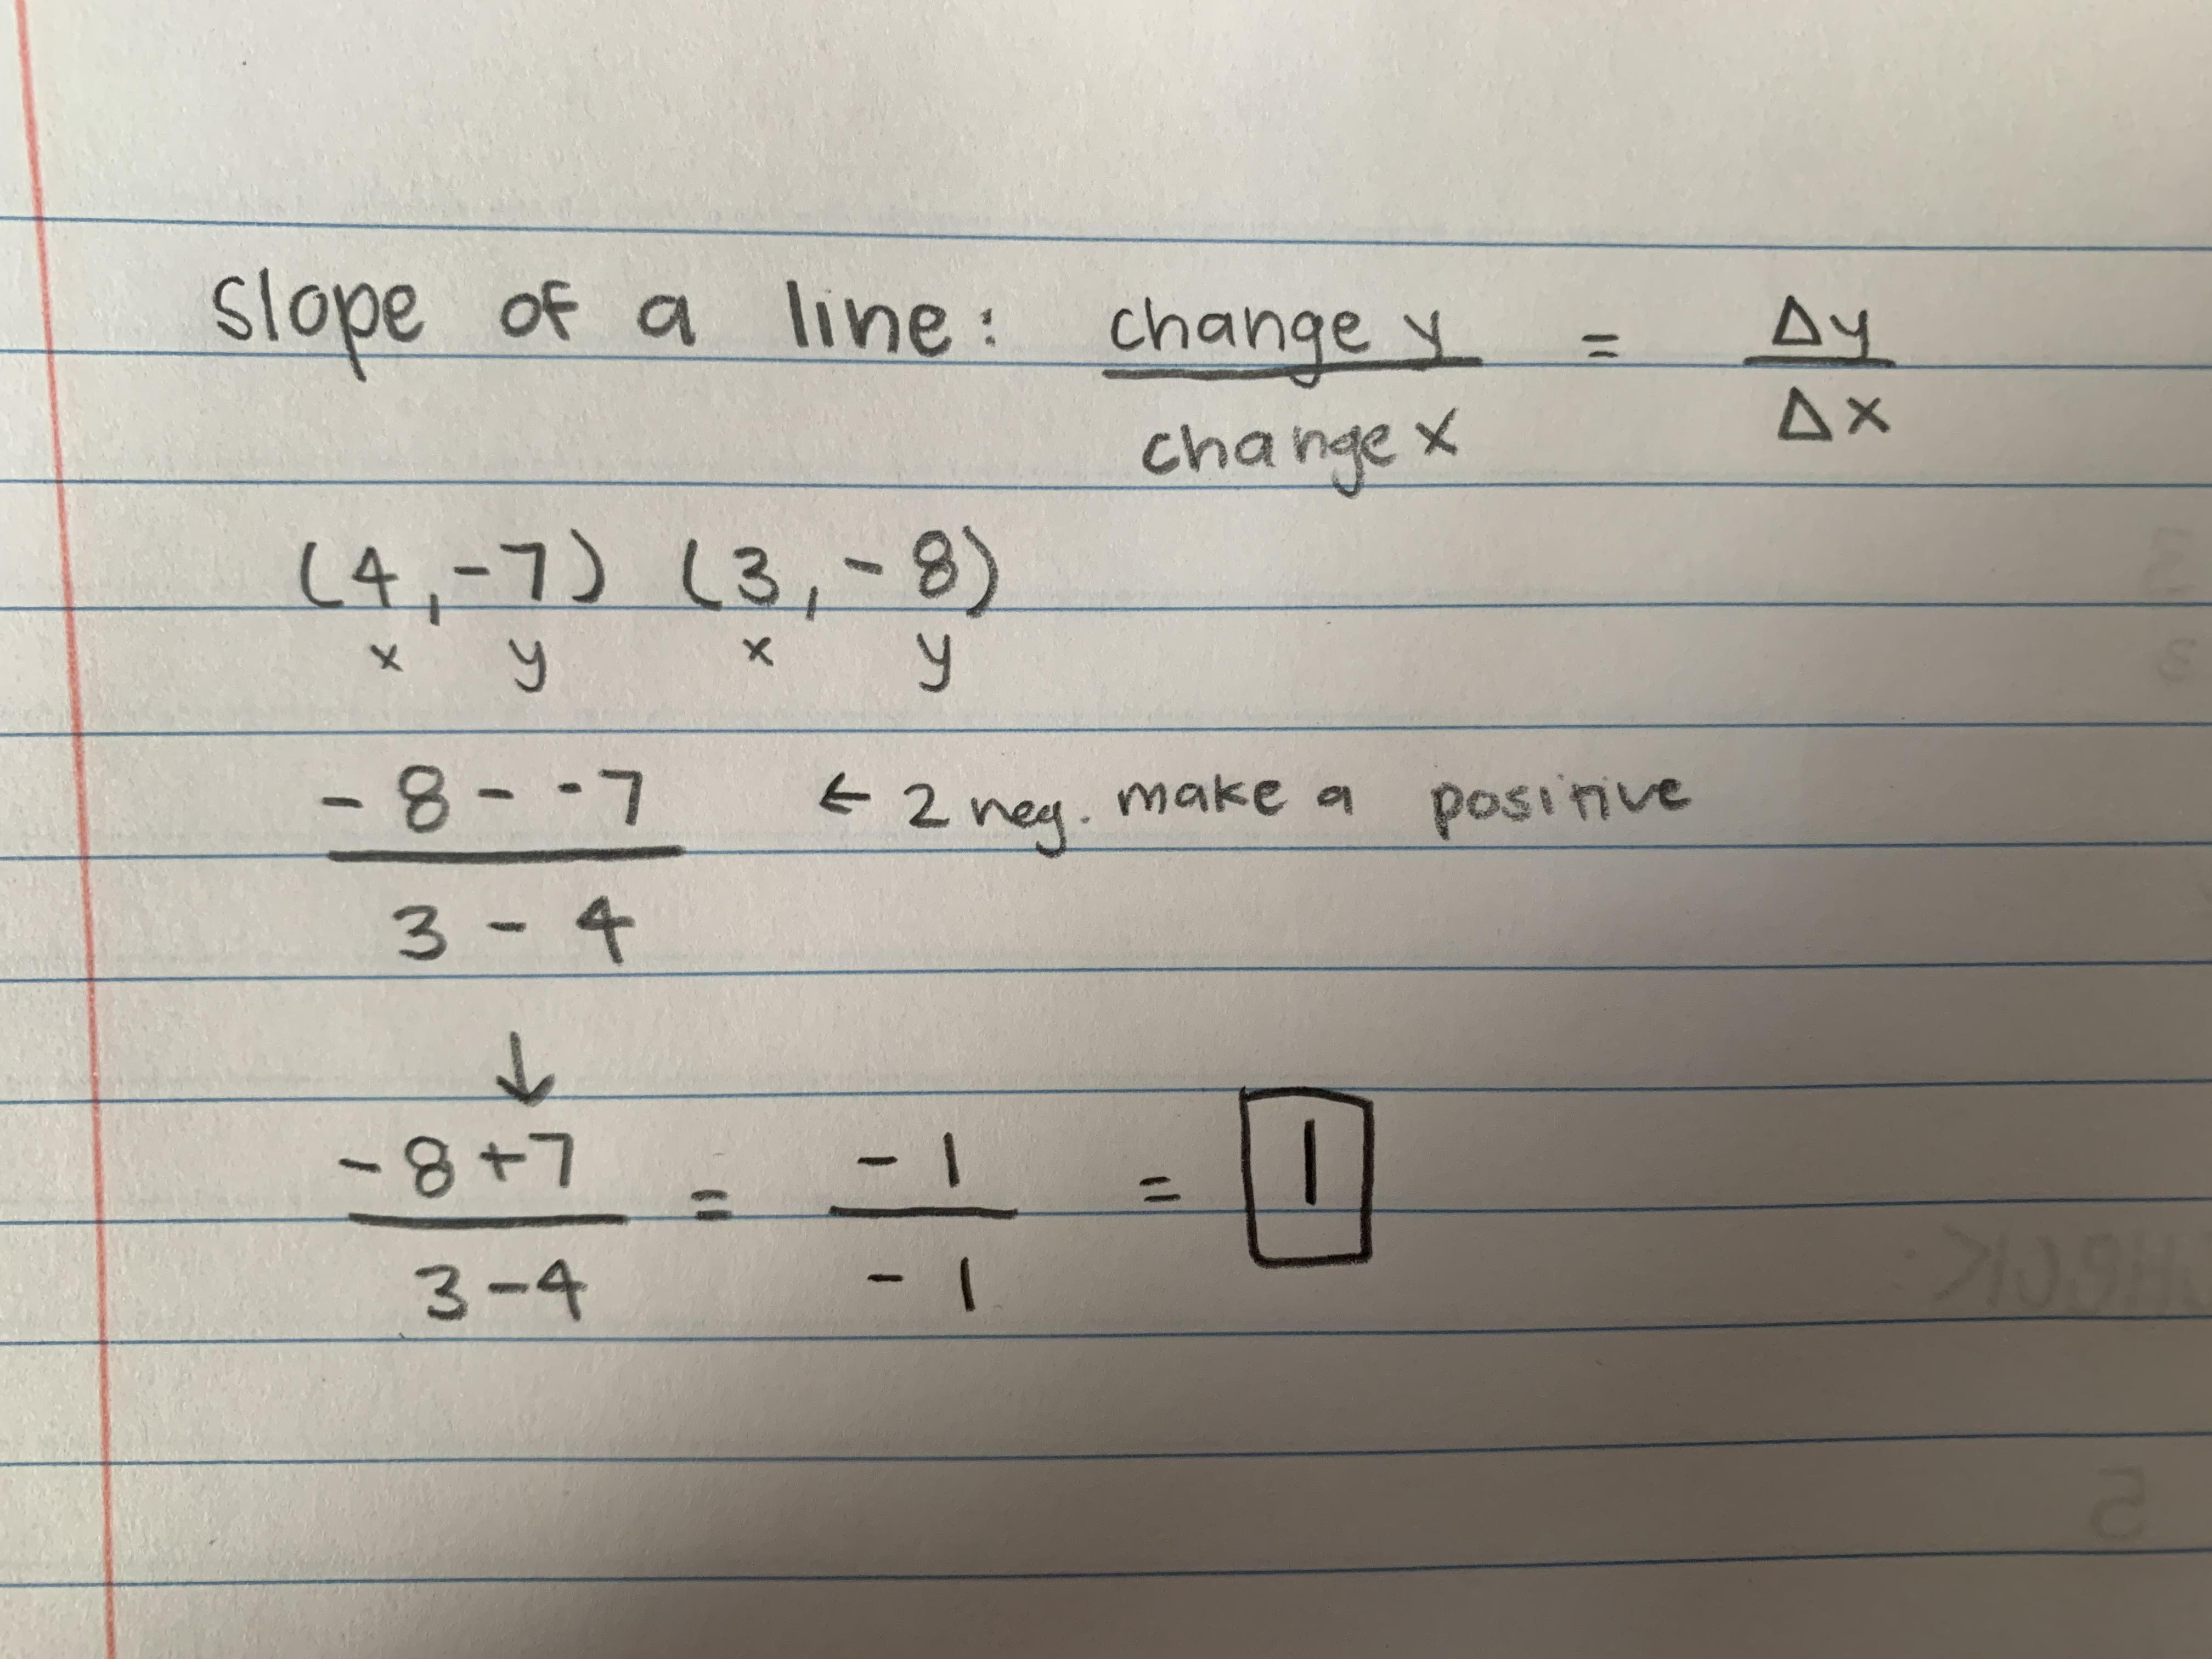 slope of a line: change y = Δy
change x Δx
(4,-7) (3,-8)
x y x y
-8--7 ← 2 neg. make a positive
3-4
↓
-8+7 = -1 = 1
3-4 -1